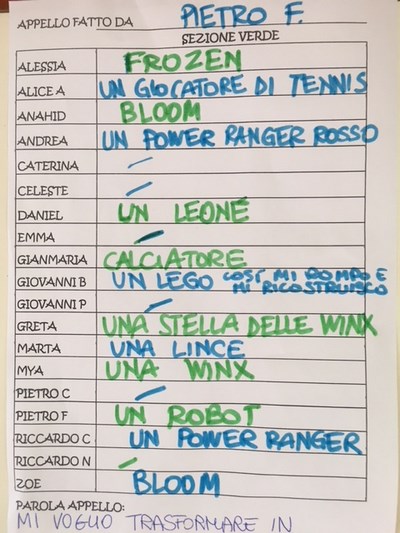 APPELLO FATTO DA PIETRO F.
SEZIONE VERDE
ALESSIA FROZEN
ALICE A UN GIOCATORE DI TENNIS
ANAHID BLOOM
ANDREA UN POWER RANGER ROSSO
CATERINA
CELESTE
DANIEL UN LEONE
EMMA
GIANMARIA CALCIATORE
GIOVANNI B UN LEGO COSÍ MI ROMPO E
MI RICOSTRUISCO
GIOVANNI P
GRETA UNA STELLA DELLE WINX
MARTA UNA LINCE
MYA UNA WINX
PIETRO C
PIETRO F UN ROBOT
RICCARDO C UN POWER RANGER
RICCARDO N
ZOE BLOOM
PAROLA APPELLO:
MI VOGLIO TRASFORMARE IN